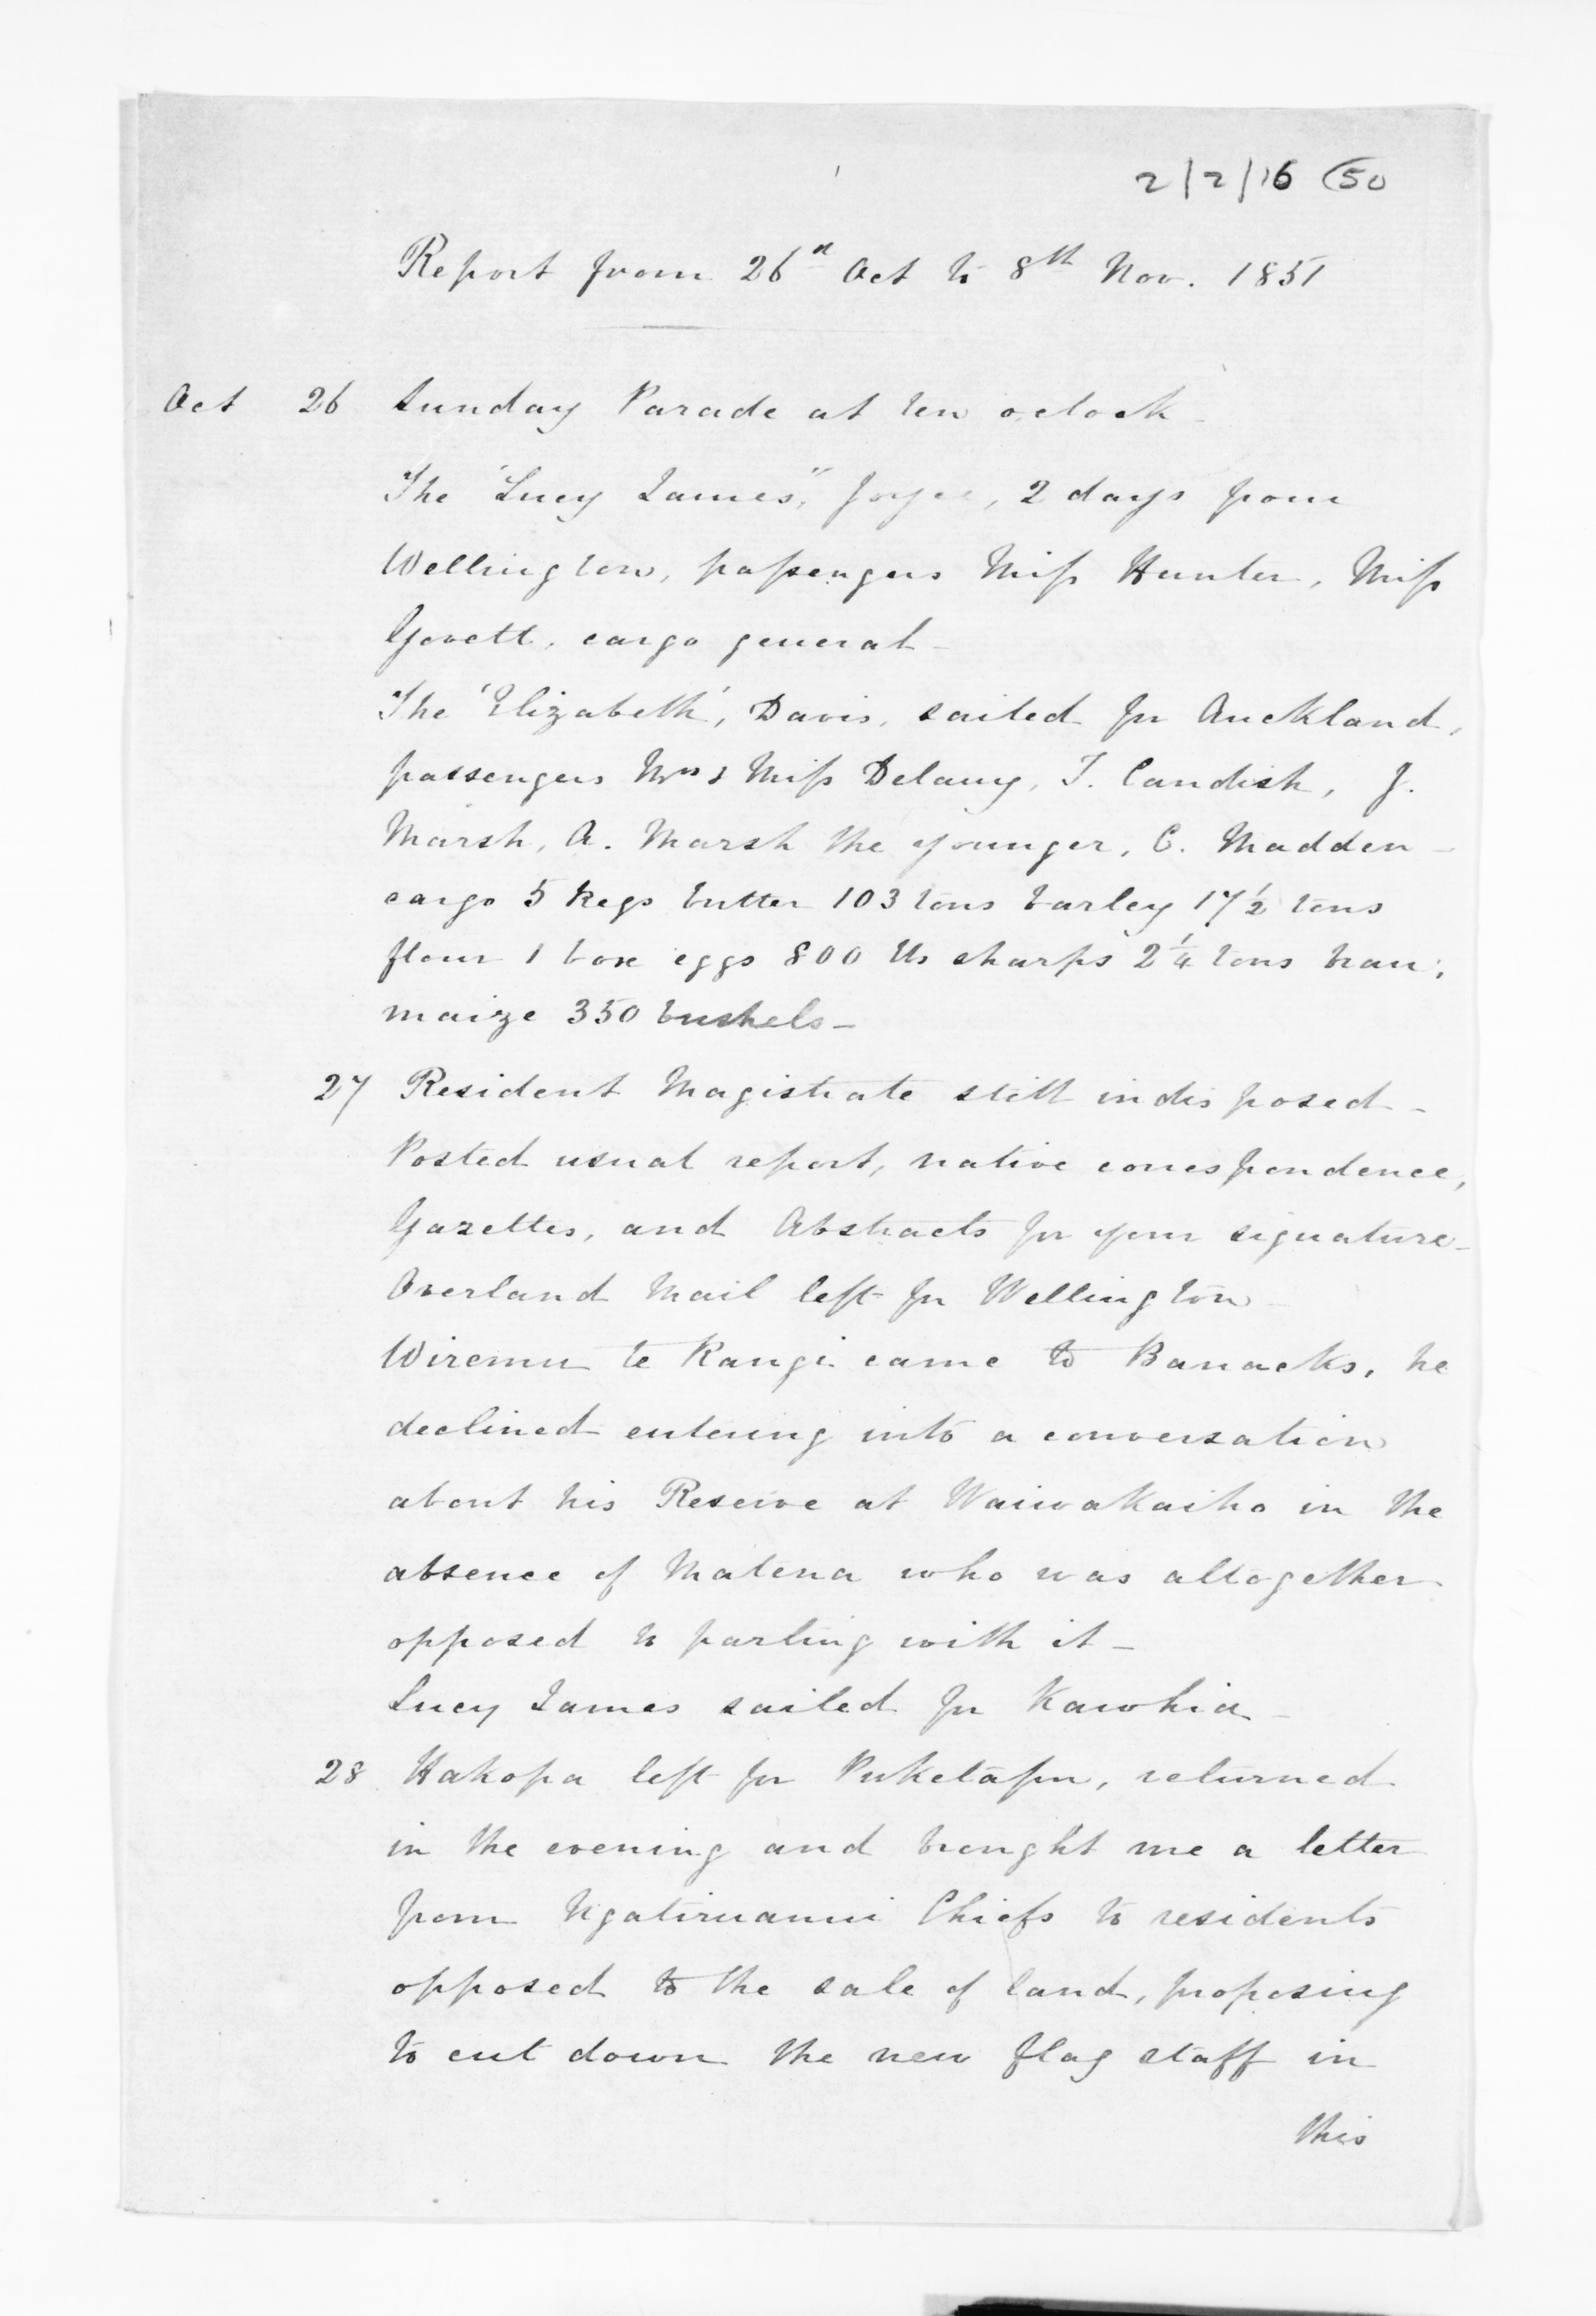 2/2/16 (50
Report from 26th Oct to 8th Nov. 1851
Oct 26 Sunday Parade at ten o,clock -
The "Lucy James", Joyce, 2 days from
Wellington, passengers Miss Hunter, Miss
Govett, cargo general -
The 'Elizabeth', Davis, sailed for Auckland,
passengers Mrs & Miss Delany, T. Candish, J.
Marsh, A. Marsh the younger, C. Madden -
cargo 5 kegs butter 103 tons barley 17 1/2 tons
flour 1 box eggs 800 lbs sharps 2 1/4 tons bran,
maize 350 bushels -
27 Resident Magistrate still indisposed -
Posted usual report, native correspondence,
Gazettes, and Abstracts for your signature -
Overland Mail left for Wellington -
Wiremu te Rangi came to Barracks, he
declined entering into a conversation
about his Reserve at Waiwakaiho in the
absence of Matena who was altogether
opposed to parting with it -
Lucy James sailed for Kawhia -
28 Hakopa left for Puketapu, returned
in the evening and brought me a letter
from Ngatiruanui Chiefs to residents
opposed to the sale of land, proposing
to cut down the new flag staff in
this